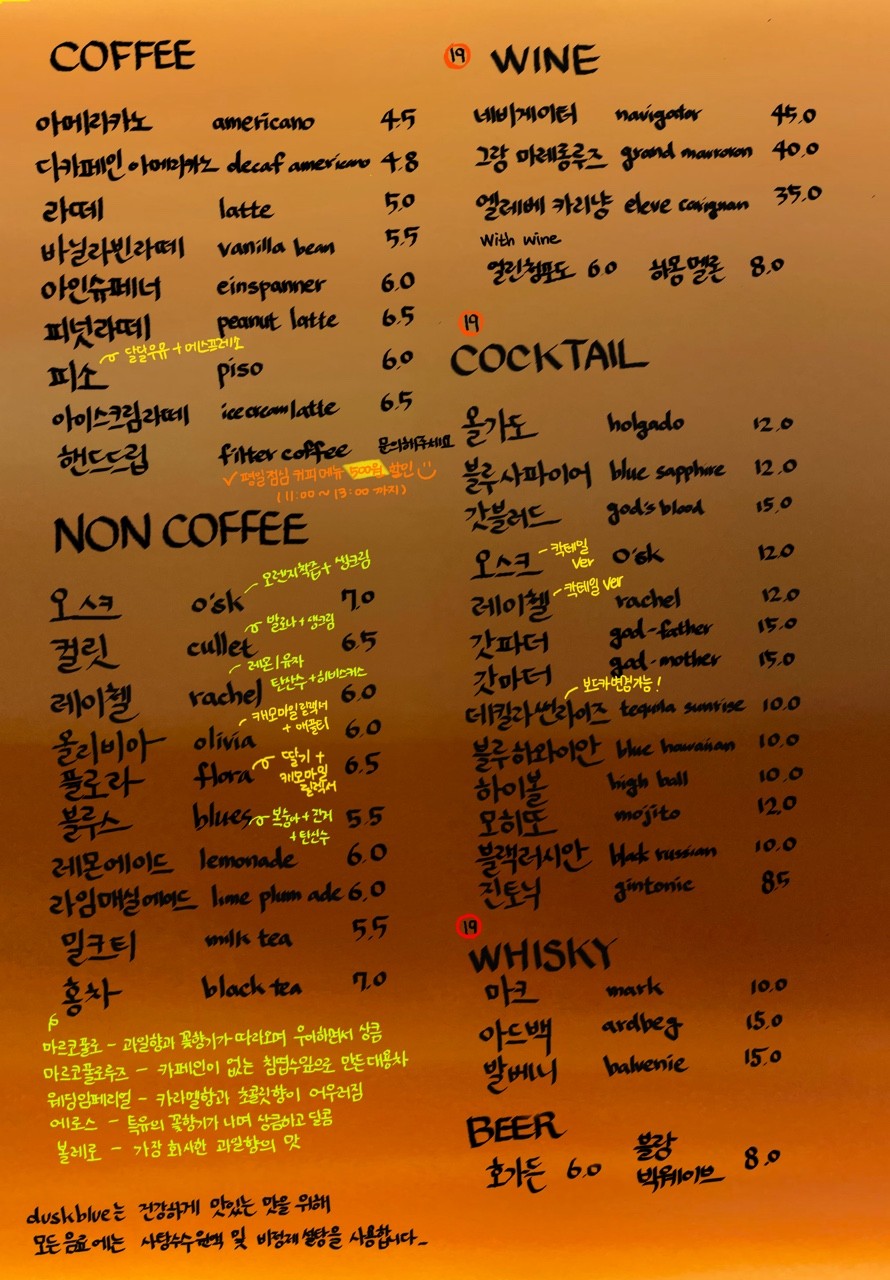 COFFEE
아메리카노 americano 4.5
디카페인 아메리카노 decaf americano 4.8
라떼 latte 5.0
바닐라빈라떼 vanilla bean 5.5
아인슈페너 einspanner 6.0
피넛라떼 peanut latte 6.5
달달우유 + 에스프레소
피소 piso 6.0
아이스크림라떼 icecream latte 6.5
핸드드립 filter coffee 문의해주세요
평일점심 커피메뉴 500원 할인
(11:00 ~ 13:00 까지)
NON COFFEE
오렌지착즙 + 생크림
오스크 o'sk 7.0
발로나 + 생크림
컬릿 cullet 6.5
레몬/유자
탄산수 + 히비스커스
레이첼 rachel 6.0
캐모마일릴렉서
+ 애플티
올리비아 olivia 6.0
딸기 +
캐모마일
릴렉서
플로라 flora 6.5
블루스 blues 5.5
복숭아 + 진저
+ 탄산수
레몬에이드 lemonade 6.0
라임매실에이드 lime plum ade 6.0
밀크티 milk tea 5.5
홍차 black tea 7.0
마르코폴로 - 과일향과 꽃향기가 따라오며 우아하면서 상큼
마르코폴로루즈 - 카페인이 없는 침엽수잎으로 만든 대용차
웨딩임페리얼 - 카라멜향과 초콜릿향이 어우러짐
에로스 - 특유의 꽃향기가 나며 상큼하고 달콤
볼레로 - 가장 화사한 과일향의 맛
duskblue는 건강하게 맛있는 맛을 위해
모든 음료에는 사탕수수원액 및 비정제 설탕을 사용합니다_
19 WINE
네비게이터 navigator 45.0
그랑 마레롱루즈 grand marroron 40.0
엘레베 카리냥 eleve carignan 35.0
With wine
얼린청포도 6.0 하몽멜론 8.0
19
COCKTAIL
올가도 holgado 12.0
블루사파이어 blue sapphire 12.0
갓블러드 god's blood 15.0
칵테일
ver
오스크 o'sk 12.0
칵테일 ver
레이첼 rachel 12.0
갓파더 god-father 15.0
갓마더 god-mother 15.0
보드카변경가능!
데킬라썬라이즈 tequila sunrise 10.0
블루하와이안 blue hawaiian 10.0
하이볼 high ball 10.0
모히또 mojito 12.0
블랙러시안 blak russian 10.0
진토닉 gintonic 8.5
19
WHISKY
마크 mark 10.0
아드백 ardbeg 15.0
발베니 balvenie 15.0
BEER
호가든 6.0 블랑
빅웨이브 8.0